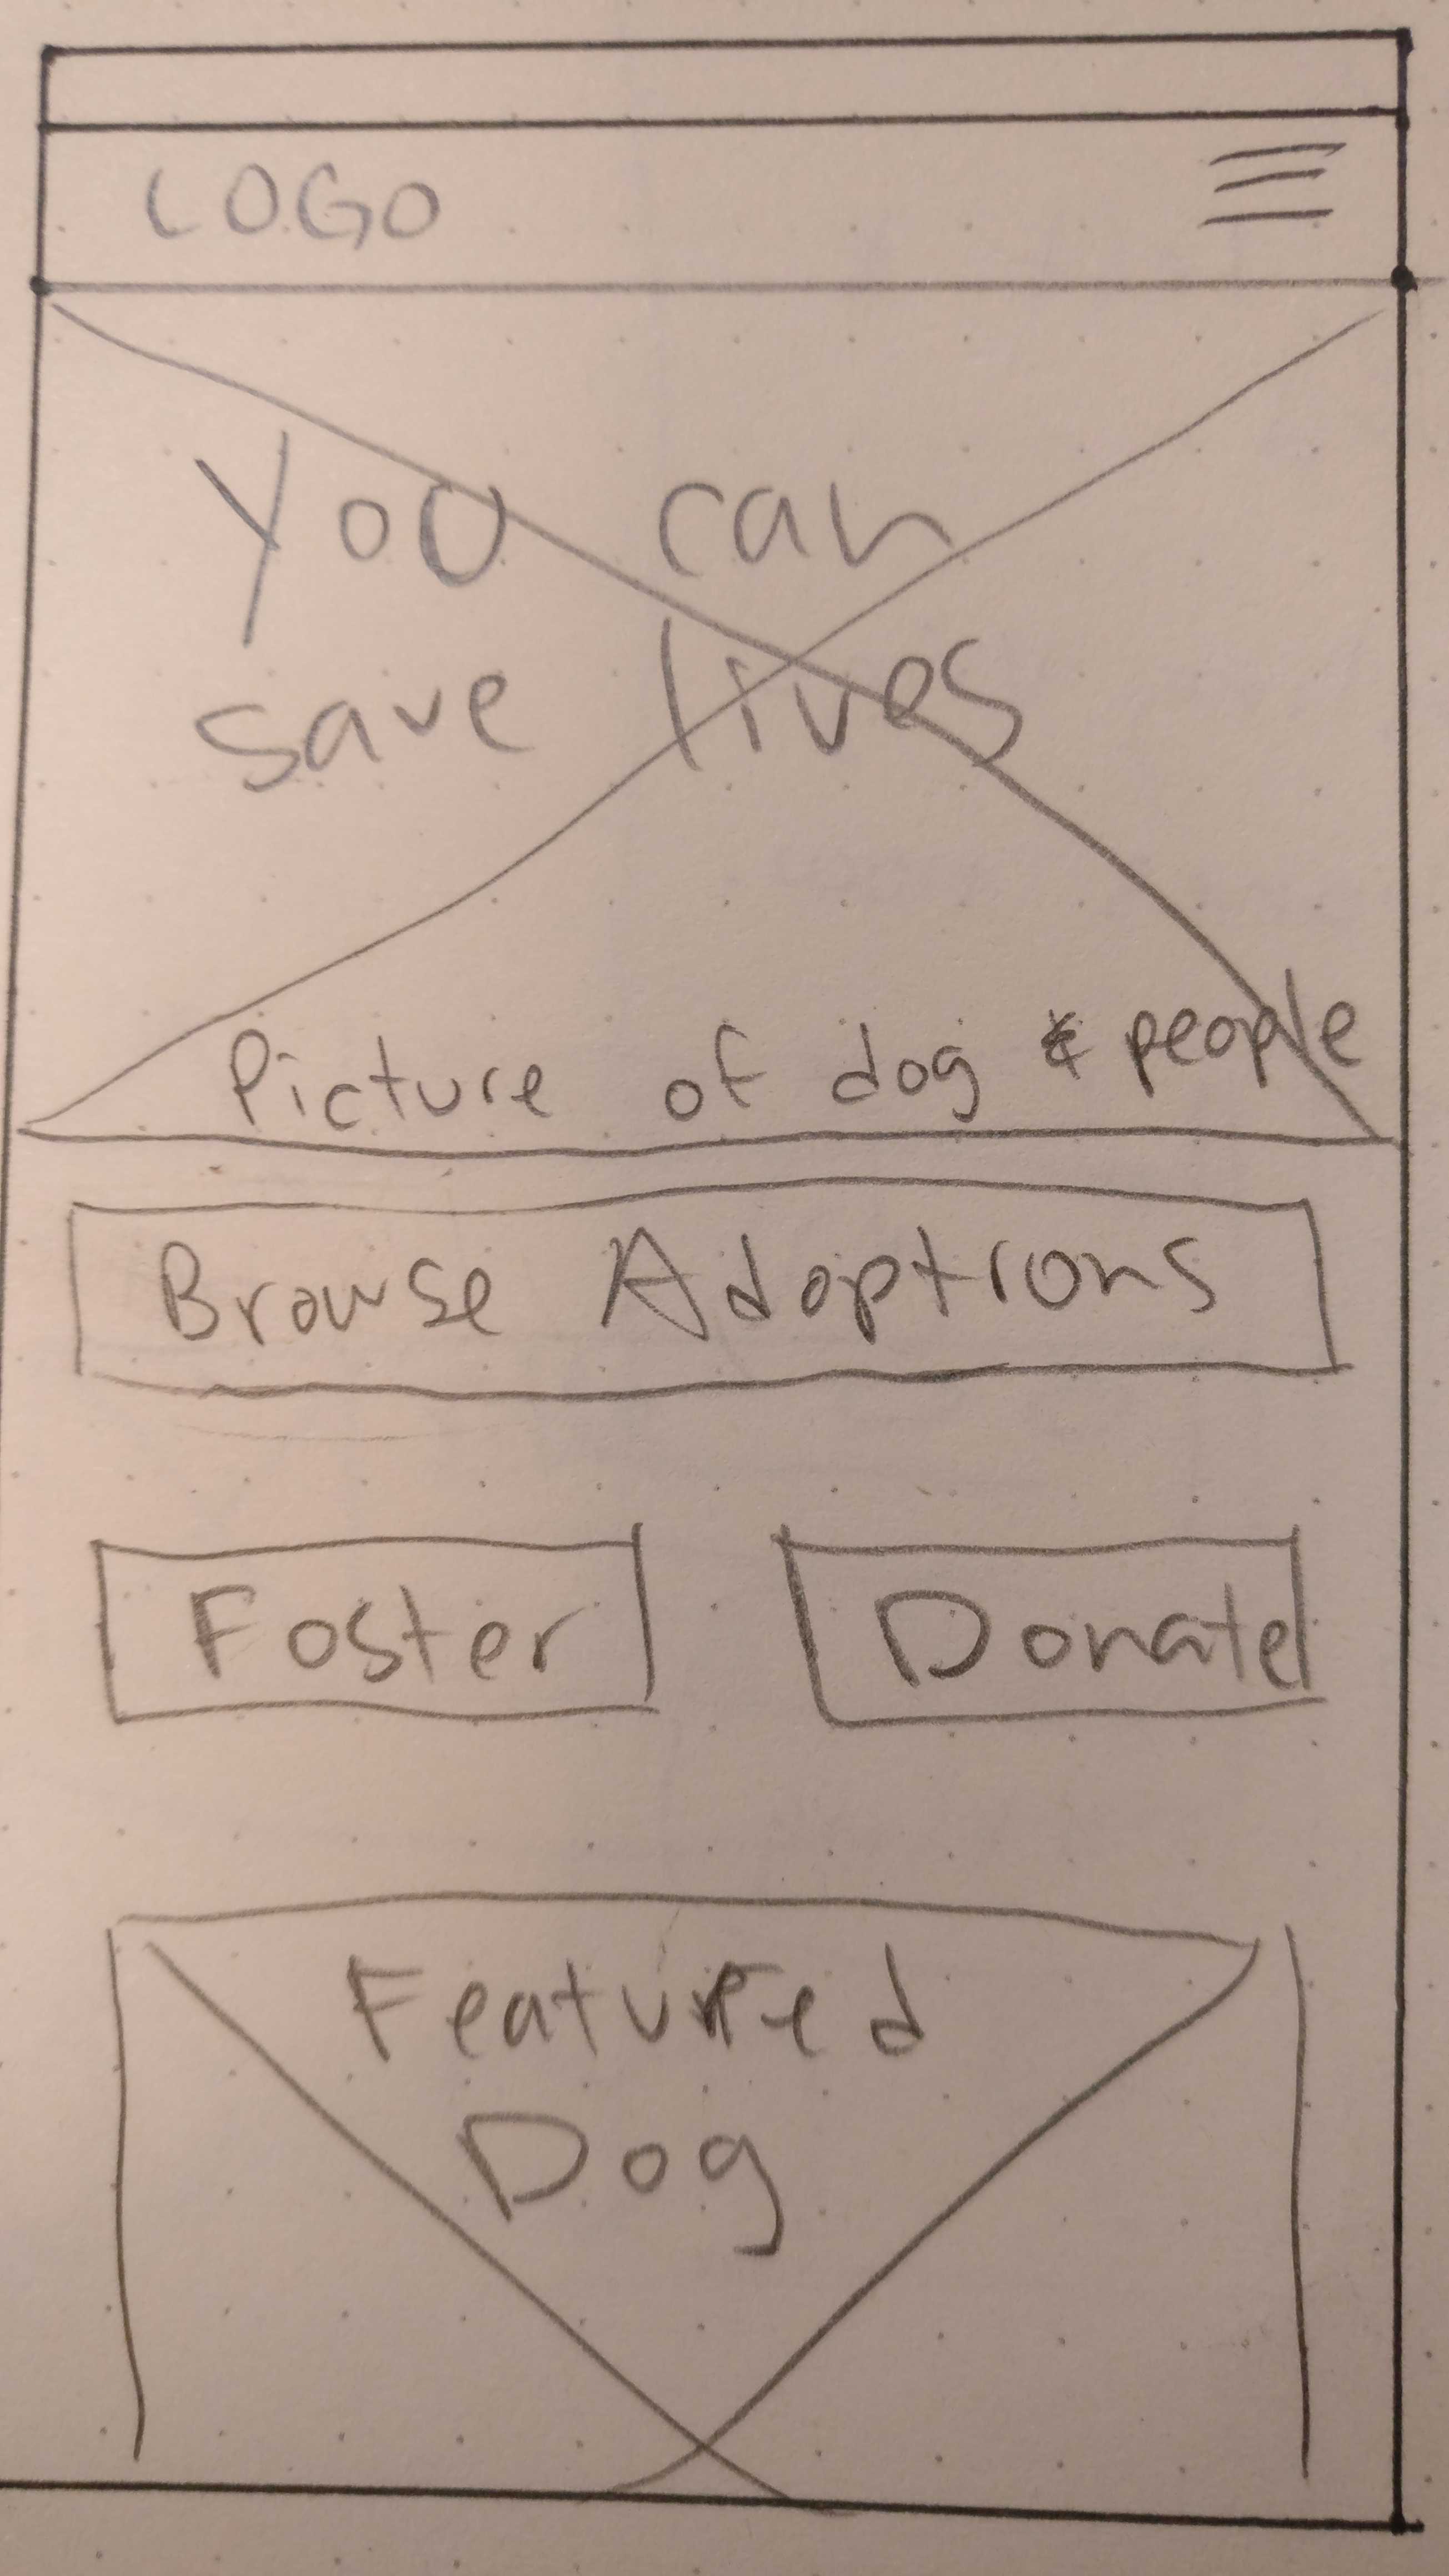 LOGO
You can
save lives
Picture of dog & people
Browse Adoptions
Foster
Donate
Featured
Dog